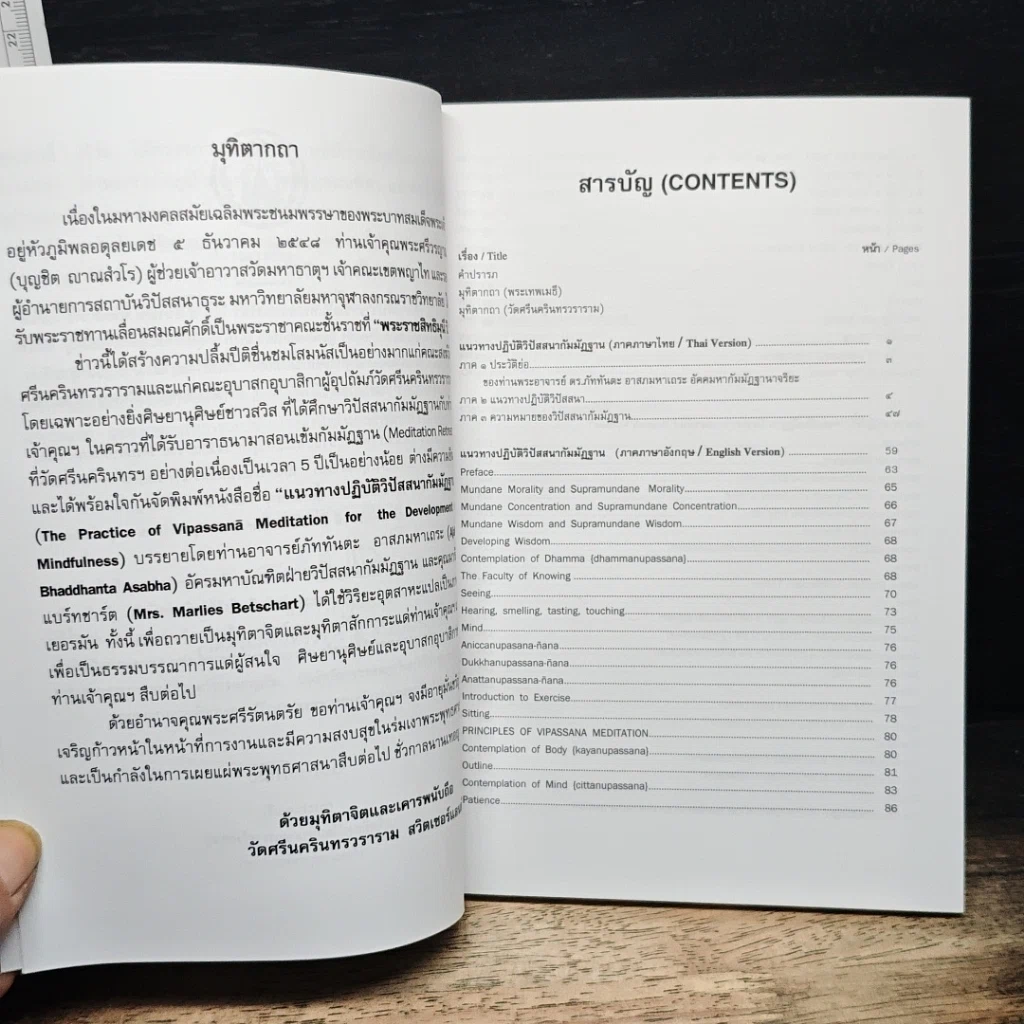 22
มุทิตากถา
เนื่องในมหามงคลสมัยเฉลิมพระชนมพรรษาของพระบาทสมเด็จพระ
อยู่หัวภูมิพลอดุลยเดช ๕ ธันวาคม ๒๕๔๘ ท่านเจ้าคุณพระศรีวรญาณ
(บุญชิต ญาณสํวโร) ผู้ช่วยเจ้าอาวาสวัดมหาธาตุฯ เจ้าคณะเขตพญาไท และ
ผู้อำนายการสถาบันวิปัสสนาธุระ มหาวิทยาลัยมหาจุฬาลงกรณราชวิทยาลัย
รับพระราชทานเลื่อนสมณศักดิ์เป็นพระราชาคณะชั้นราชที่ “พระราชสิทธิมุนี
ข่าวนี้ได้สร้างความปลื้มปีติชื่นชมโสมนัสเป็นอย่างมากแก่คณะสงฆ์
ศรีนครินทรวรารามและแก่คณะอุบาสกอุบาสิกาผู้อุปถัมภ์วัดศรีนครินทรวราราม
โดยเฉพาะอย่างยิ่งศิษยานุศิษย์ชาวสวิส ที่ได้ศึกษาวิปัสสนากัมมัฏฐานกับ
เจ้าคุณฯ ในคราวที่ได้รับอาราธนามาสอนเข้มกัมมัฏฐาน (Meditation
ที่วัดศรีนครินทรฯ อย่างต่อเนื่องเป็นเวลา 5 ปีเป็นอย่างน้อย ต่างมีความ
และได้พร้อมใจกันจัดพิมพ์หนังสือชื่อ “แนวทางปฏิบัติวิปัสสนากัมมัฏฐาน
(The Practice of Vipassanā Meditation for the Development
Mindfulness) บรรยายโดยท่านอาจารย์ภัททันตะ อาสภมหาเถระ
Bhaddhanta Asabha) อัครมหาบัณฑิตฝ่ายวิปัสสนากัมมัฏฐาน และคุณ
แบร์ทชาร์ต (Mrs. Marlies Betschart) ได้ใช้วิริยะอุตสาหะแปลเป็น
เยอรมัน ทั้งนี้ เพื่อถวายเป็นมุทิตาจิตและมุทิตาสักการะแด่ท่านเจ้าคุณฯ
เพื่อเป็นธรรมบรรณาการแด่ผู้สนใจ ศิษยานุศิษย์และอุบาสกอุบาสิกา
ท่านเจ้าคุณฯ สืบต่อไป
ด้วยอำนาจคุณพระศรีรัตนตรัย ขอท่านเจ้าคุณฯ จงมีอายุมั่นขวัญ
เจริญก้าวหน้าในหน้าที่การงานและมีความสงบสุขในร่มเงาพระพุทธ
และเป็นกำลังในการเผยแผ่พระพุทธศาสนาสืบต่อไป ชั่วกาลนาน
ด้วยมุทิตาจิตและเคารพนับถือ
วัดศรีนครินทรวราราม สวิตเซอร์แลนด์
สารบัญ (CONTENTS)
เรื่อง / Title หน้า / Pages
คำปรารภ
มุทิตากถา (พระเทพเมธี)
มุทิตากถา (วัดศรีนครินทรวราราม)
แนวทางปฏิบัติวิปัสสนากัมมัฏฐาน (ภาคภาษาไทย / Thai Version) ๑
ภาค ๑ ประวัติย่อ ๓
ของท่านพระอาจารย์ ดร.ภัททันตะ อาสภมหาเถระ อัคคมหากัมมัฏฐานาจริยะ
ภาค ๒ แนวทางปฏิบัติวิปัสสนา ๕
ภาค ๓ ความหมายของวิปัสสนากัมมัฏฐาน ๔๗
แนวทางปฏิบัติวิปัสสนากัมมัฏฐาน (ภาคภาษาอังกฤษ / English Version) 59
Preface 63
Mundane Morality and Supramundane Morality 65
Mundane Concentration and Supramundane Concentration 66
Mundane Wisdom and Supramundane Wisdom 67
Developing Wisdom 68
Contemplation of Dhamma (dhammanupassana) 68
The Faculty of Knowing 68
Seeing 70
Hearing, smelling, tasting, touching 73
Mind 75
Aniccanupasana-ñana 76
Dukkhanupassana-ñana 76
Anattanupassana-ñana 76
Introduction to Exercise 77
Sitting 78
PRINCIPLES OF VIPASSANA MEDITATION 80
Contemplation of Body (kayanupassana) 80
Outline 81
Contemplation of Mind (cittanupassana) 83
Patience 86